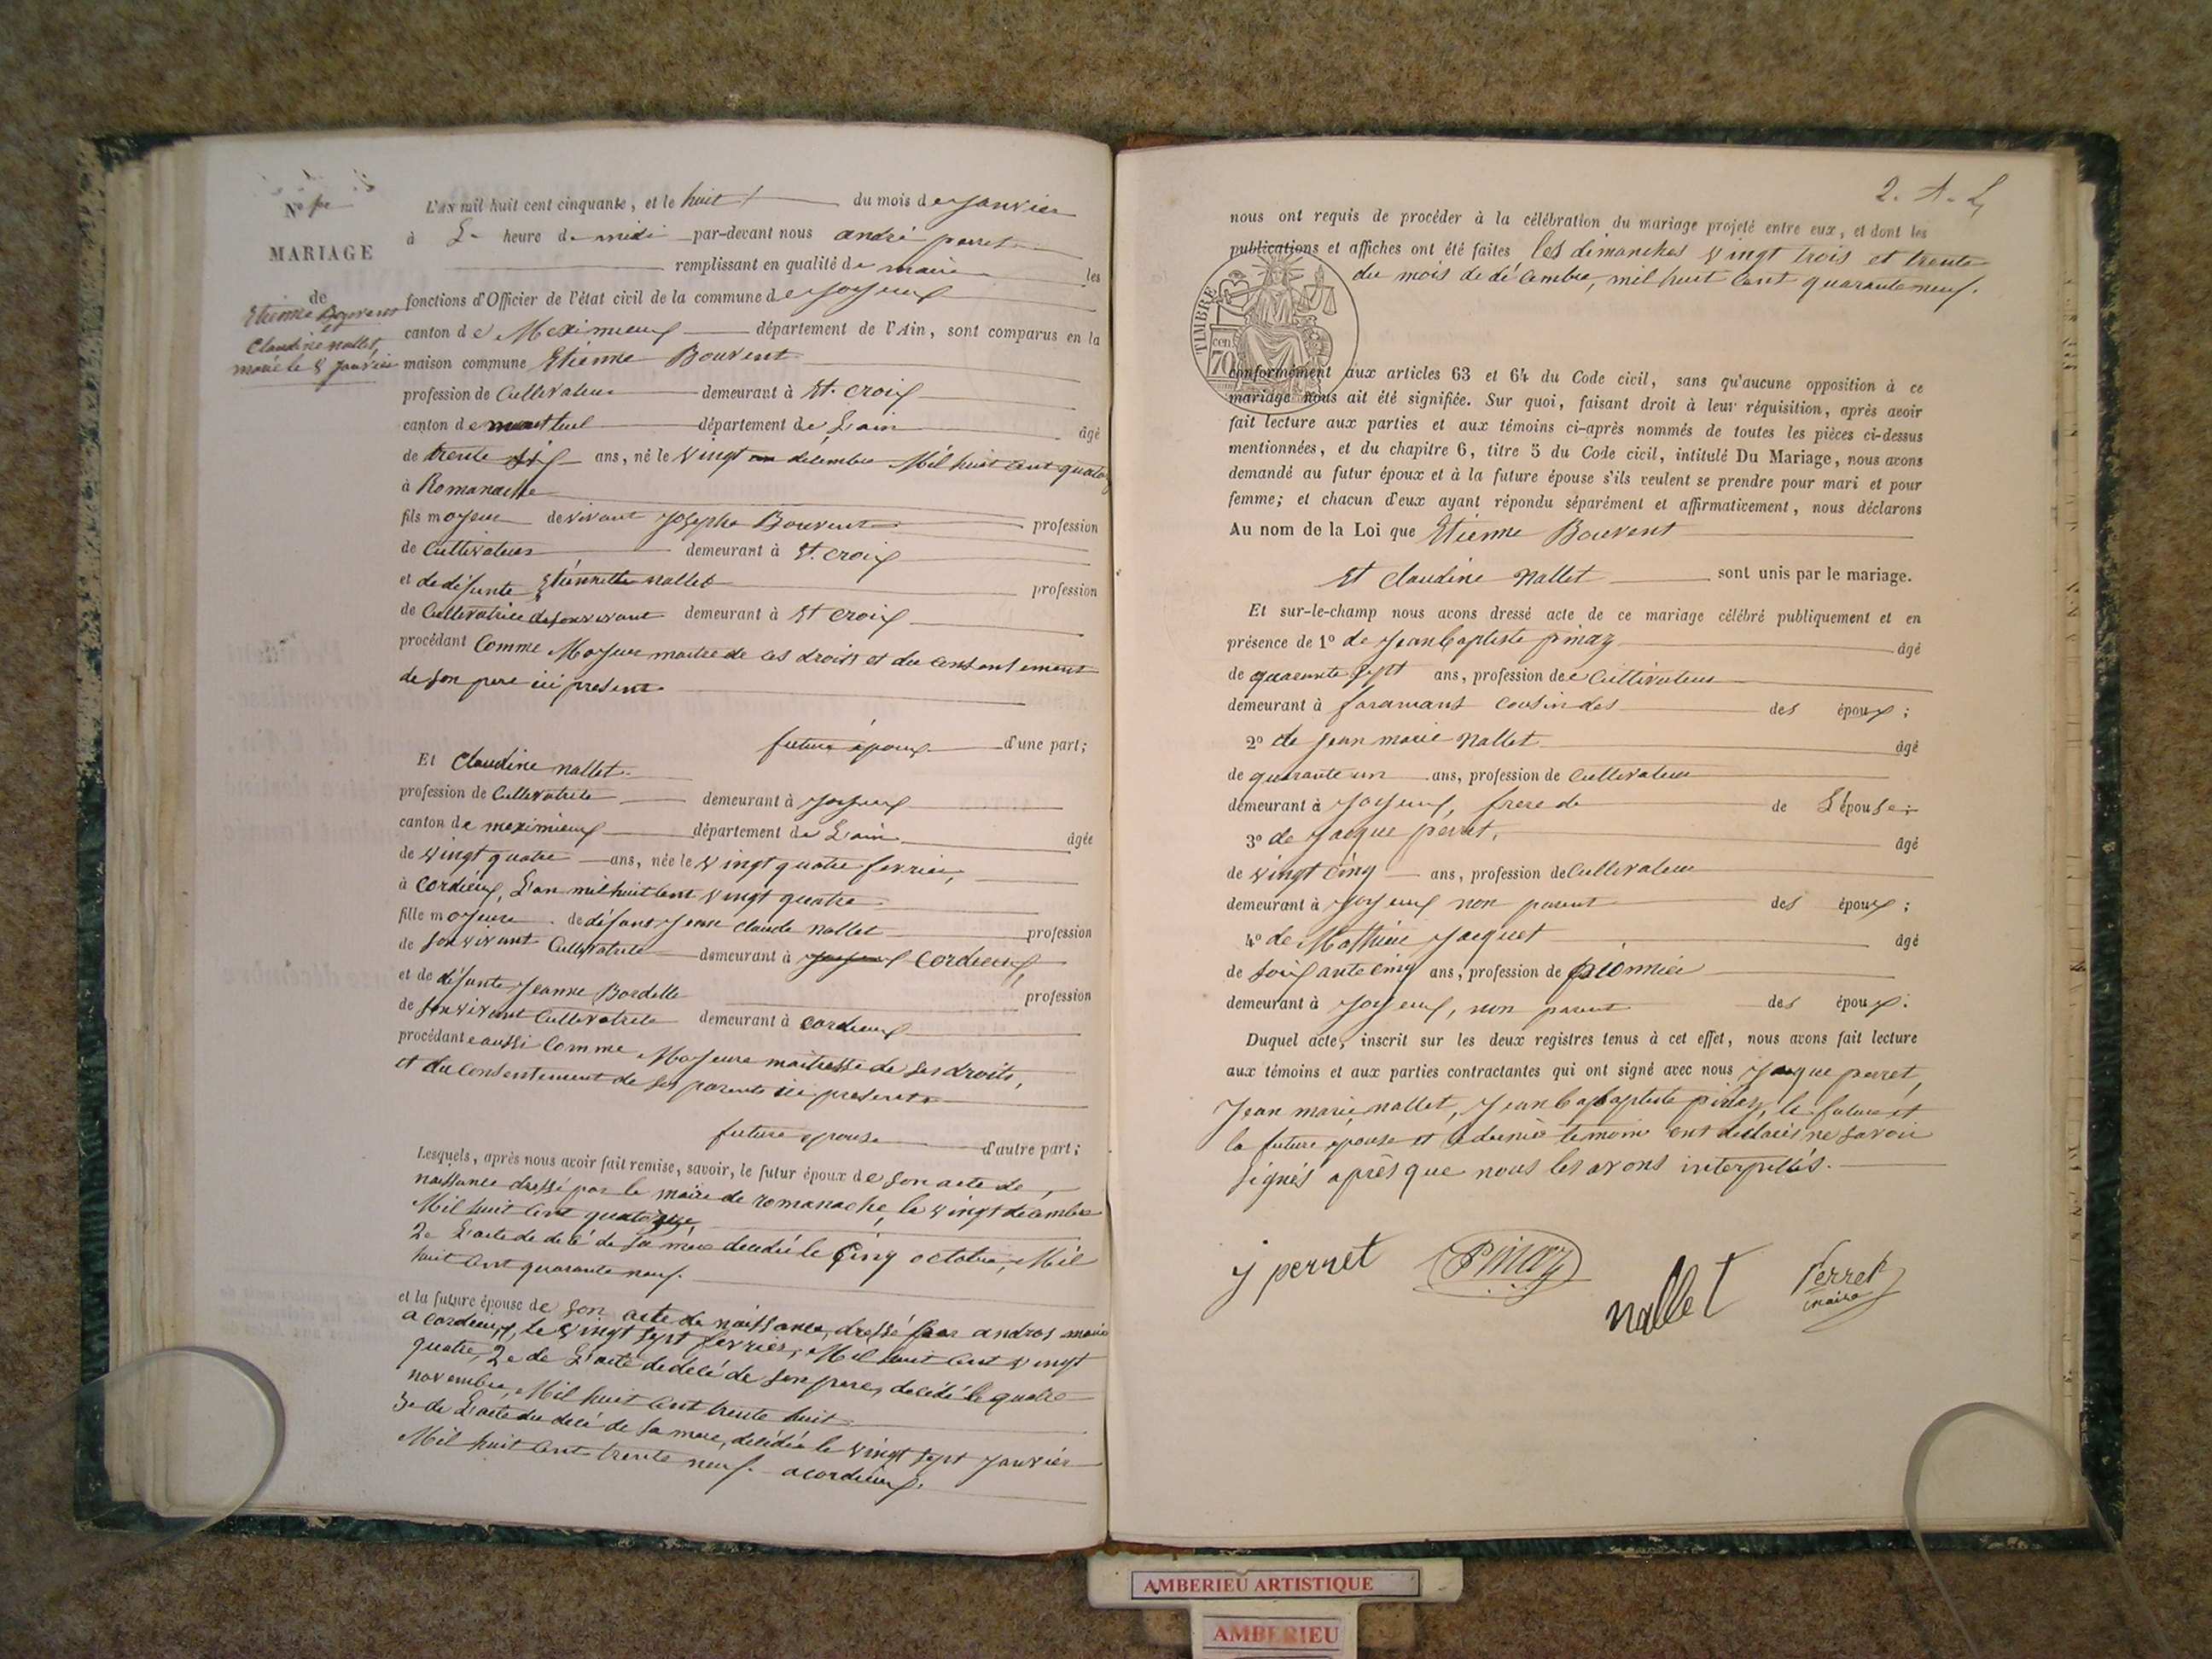 No pr
MARIAGE
de
Etienne Bouvent
et
Claudine nallet
marié le 8 janvier
L'an mil huit cent cinquante, et le huit du mois de janvier
à L'heure de midi par-devant nous andré perret
remplissant en qualité de maire les
fonctions d'Officier de l'état civil de la commune de joyeux
canton de Meximieux département de l'Ain, sont comparus en la
maison commune Etienne Bouvent
profession de Cultivateur demeurant à St. croix
canton de montluel département de L'ain âgé
de trente six ans, né le vingt decembre Mil huit cent quatorze
à Romanache
fils majeur de vivant josephe Bouvent profession
de Cultivateur demeurant à St. croix
et de défunte Etiennette nallet profession
de Cultivatrice de son vivant demeurant à St croix
procédant Comme Majeur maitre de ces droits et du consentement
de son pere ici present
futur époux d'une part;
Et Claudine nallet
profession de Cultivatrice demeurant à joyeux
canton de meximieux département de L'ain âgée
de vingt quatre ans, née le vingt quatre fevrier,
à cordieux, L'an mil huit cent vingt quatre
fille majeure de défunt jean claude nallet profession
de son vivant Cultivatrice demeurant à joyeux cordieux
et de défunte jeanne Bordelle profession
de son vivant Cultivatrice demeurant à cordieux
procédant aussi Comme Majeure maitresse de ses droits,
et du Consentement de ses parents ici presents
future epouse d'autre part;
Lesquels, après nous avoir fait remise, savoir, le futur époux de son acte de
naissance dressé par le maire de romanache, le vingt decembre
Mil huit cent quatorze,
2e L'acte de décé de sa mere decedée le Cinq octobre, Mil
huit cent quarante neuf.
et la future épouse de son acte de naissance, dressé par andros maire
a cordieux, le vingt sept fevrier, Mil huit cent vingt
quatre, 2e de L'acte de décé de son pere, decédé le quatre
novembre, Mil huit cent trente huit
3e de L'acte du décé de sa mere, decédée le vingt sept janvier
Mil huit cent trente neuf. a cordieux.
2. A. L
nous ont requis de procéder à la célébration du mariage projeté entre eux, et dont les
publications et affiches ont été faites les dimanches vingt trois et trente
du mois de décembre, mil huit cent quarante neuf.
TIMBRE
70 cen
conformément aux articles 63 et 64 du Code civil, sans qu'aucune opposition à ce
mariage nous ait été signifiée. Sur quoi, faisant droit à leur réquisition, après avoir
fait lecture aux parties et aux témoins ci-après nommés de toutes les pièces ci-dessus
mentionnées, et du chapitre 6, titre 5 du Code civil, intitulé Du Mariage, nous avons
demandé au futur époux et à la future épouse s'ils veulent se prendre pour mari et pour
femme; et chacun d'eux ayant répondu séparément et affirmativement, nous déclarons
Au nom de la Loi que Etienne Bouvent
Et claudine nallet sont unis par le mariage.
Et sur-le-champ nous avons dressé acte de ce mariage célébré publiquement et en
présence de 1o de jean baptiste pinaz âgé
de quarante sept ans, profession de Cultivateur
demeurant à faramans cousin des des époux;
2o de jean marie nallet âgé
de quarante un ans, profession de Cultivateur
demeurant à joyeux, frere de de L'épouse;
3o de jacque perret, âgé
de vingt cinq ans, profession de Cultivateur
demeurant à joyeux non parent des époux;
4o de Mathieu jacquet âgé
de soixante cinq ans, profession de pionnier
demeurant à joyeux, non parent des époux.
Duquel acte, inscrit sur les deux registres tenus à cet effet, nous avons fait lecture
aux témoins et aux parties contractantes qui ont signé avec nous jacque perret,
jean marie nallet, jean babaptiste pinaz, le futur et
la future épouse et le dernié temoin ont declarés ne savoir
signés après que nous les avons interpellés.
j perret
Pinaz
nallet
Perret
maire
AMBERIEU ARTISTIQUE
AMBERIEU